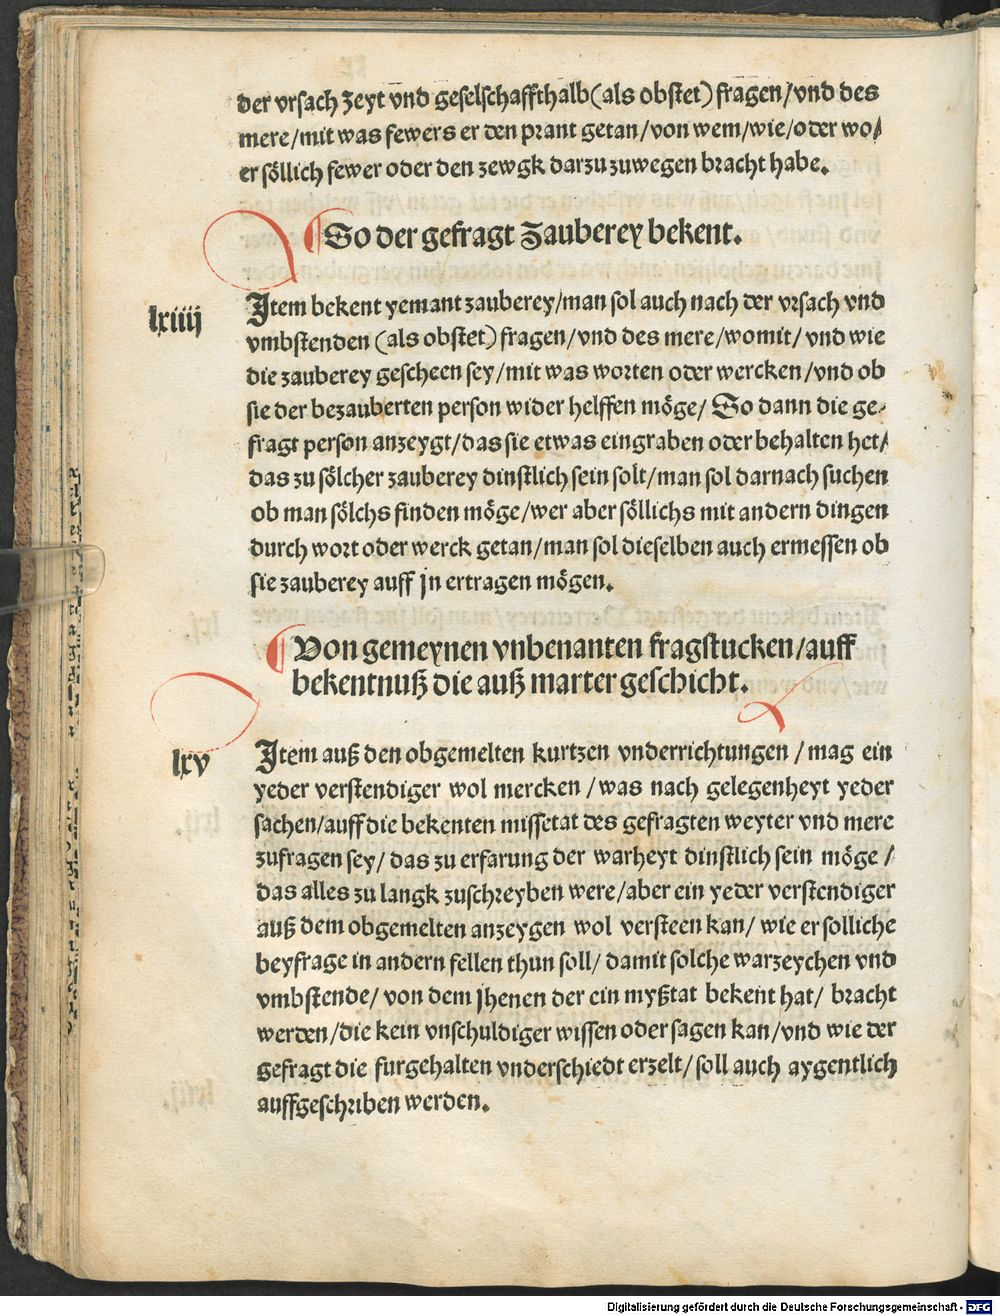 der vrsach Zeyt vnd geselschaffthalb(als obstet)fragen/vnd des
mere/mit was fewers er den prant getan/von wem/wie/oder wo/
er söllich fewer oder den zewgk darzu zuwegen bracht habe.
¶So der gefragt Zauberey bekent.
lxiiij
Item bekent yemant zauberey/man sol auch nach der vrsach vnd
vmbstenden (als obstet)fragen/vnd des mere/womit/ vnd wie
die zauberey gescheen sey/mit was worten oder wercken/vnd ob
sie der bezauberten person wider helffen möge/ So dann die ge-
fragt person anzeygt/das sie etwas eingraben oder behalten het/
das zu sölcher zauberey dinstlich sein solt/man sol darnach suchen
ob man sölchs finden möge/wer aber söllichs mit andern dingen
durch wort oder werck getan/man sol dieselben auch ermessen ob
sie zauberey auff jn ertragen mögen.
¶Von gemeynen vnbenanten fragstucken/auff
bekentnuß die auß marter geschicht.
lxv
Item auß den obgemelten kurtzen vnderrichtungen / mag ein
yeder verstendiger wol mercken / was nach gelegenheyt yeder
sachen/auff die bekenten missetat des gefragten weyter vnd mere
zufragen sey/ das zu erfarung der warheyt dinstlich sein möge /
das alles zu langk zuschreyben were/aber ein yeder verstendiger
auß dem obgemelten anzeygen wol versteen kan/ wie er solliche
beyfrage in andern fellen thun soll/ damit solche warzeychen vnd
vmbstende/ von dem jhenen der ein myßtat bekent hat/ bracht
werden/die kein vnschuldiger wissen oder sagen kan/vnd wie der
gefragt die furgehalten vnderschiedt erzelt/ soll auch aygentlich
auffgeschriben werden.
Digitalisierung gefördert durch die Deutsche Forschungsgemeinschaft - DFG